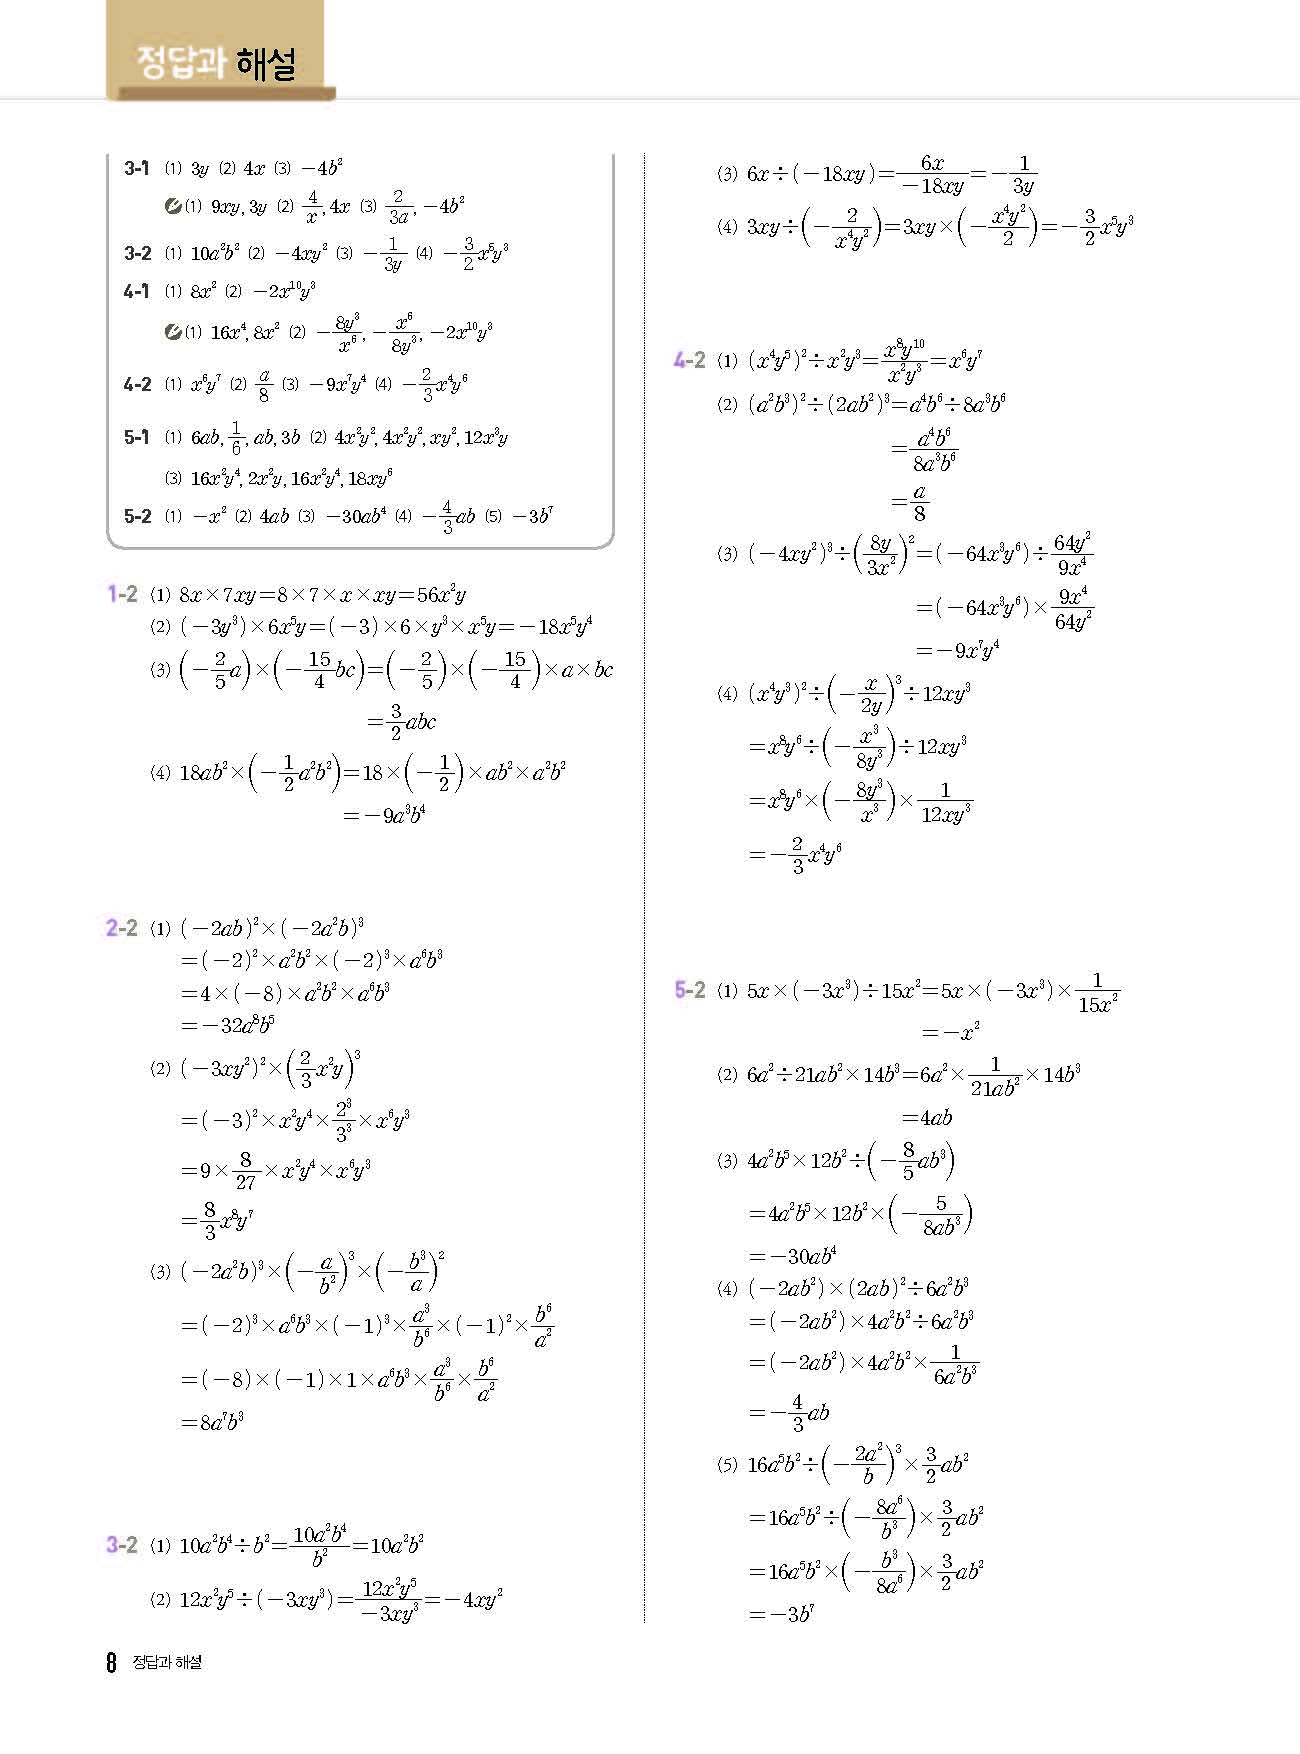 정답과 해설
3-1 (1) 3y (2) 4x (3) −4b²
(1) 9xy, 3y (2) 4/x, 4x (3) 2/3a, −4b²
3-2 (1) 10a²b² (2) −4xy² (3) −1/3y (4) −3/2 x⁵y³
4-1 (1) 8x² (2) −2x¹⁰y³
(1) 16x⁴, 8x² (2) −8y³/x⁶, −x⁶/8y³, −2x¹⁰y³
4-2 (1) x⁶y⁷ (2) a/8 (3) −9x⁷y⁴ (4) −2/3 x⁴y⁶
5-1 (1) 6ab, 1/6, ab, 3b (2) 4x²y², 4x²y², xy², 12x³y
(3) 16x²y⁴, 2x²y, 16x²y⁴, 18xy⁶
5-2 (1) −x² (2) 4ab (3) −30ab⁴ (4) −4/3 ab (5) −3b⁷
1-2 (1) 8x×7xy=8×7×x×xy=56x²y
(2) (−3y³)×6x⁵y=(−3)×6×y³×x⁵y=−18x⁵y⁴
(3) (−2/5 a)×(−15/4 bc)=(−2/5)×(−15/4)×a×bc
=3/2 abc
(4) 18ab²×(−1/2 a²b²)=18×(−1/2)×ab²×a²b²
=−9a³b⁴
2-2 (1) (−2ab)²×(−2a²b)³
=(−2)²×a²b²×(−2)³×a⁶b³
=4×(−8)×a²b²×a⁶b³
=−32a⁸b⁵
(2) (−3xy²)²×(2/3 x²y)³
=(−3)²×x²y⁴×2³/3³×x⁶y³
=9×8/27×x²y⁴×x⁶y³
=8/3 x⁸y⁷
(3) (−2a²b)³×(−a/b²)³×(−b³/a)²
=(−2)³×a⁶b³×(−1)³×a³/b⁶×(−1)²×b⁶/a²
=(−8)×(−1)×1×a⁶b³×a³/b⁶×b⁶/a²
=8a⁷b³
3-2 (1) 10a²b⁴÷b²=10a²b⁴/b²=10a²b²
(2) 12x²y⁵÷(−3xy³)=12x²y⁵/−3xy³=−4xy²
(3) 6x÷(−18xy)=6x/−18xy=−1/3y
(4) 3xy÷(−2/x⁴y²)=3xy×(−x⁴y²/2)=−3/2 x⁵y³
4-2 (1) (x⁴y⁵)²÷x²y³=x⁸y¹⁰/x²y³=x⁶y⁷
(2) (a²b³)²÷(2ab²)³=a⁴b⁶÷8a³b⁶
=a⁴b⁶/8a³b⁶
=a/8
(3) (−4xy²)³÷(8y/3x²)²=(−64x³y⁶)÷64y²/9x⁴
=(−64x³y⁶)×9x⁴/64y²
=−9x⁷y⁴
(4) (x⁴y³)²÷(−x/2y)³÷12xy³
=x⁸y⁶÷(−x³/8y³)÷12xy³
=x⁸y⁶×(−8y³/x³)×1/12xy³
=−2/3 x⁴y⁶
5-2 (1) 5x×(−3x³)÷15x²=5x×(−3x³)×1/15x²
=−x²
(2) 6a²÷21ab²×14b³=6a²×1/21ab²×14b³
=4ab
(3) 4a²b⁵×12b²÷(−8/5 ab³)
=4a²b⁵×12b²×(−5/8ab³)
=−30ab⁴
(4) (−2ab²)×(2ab)²÷6a²b³
=(−2ab²)×4a²b²÷6a²b³
=(−2ab²)×4a²b²×1/6a²b³
=−4/3 ab
(5) 16a⁵b²÷(−2a²/b)³×3/2 ab²
=16a⁵b²÷(−8a⁶/b³)×3/2 ab²
=16a⁵b²×(−b³/8a⁶)×3/2 ab²
=−3b⁷
8 정답과 해설